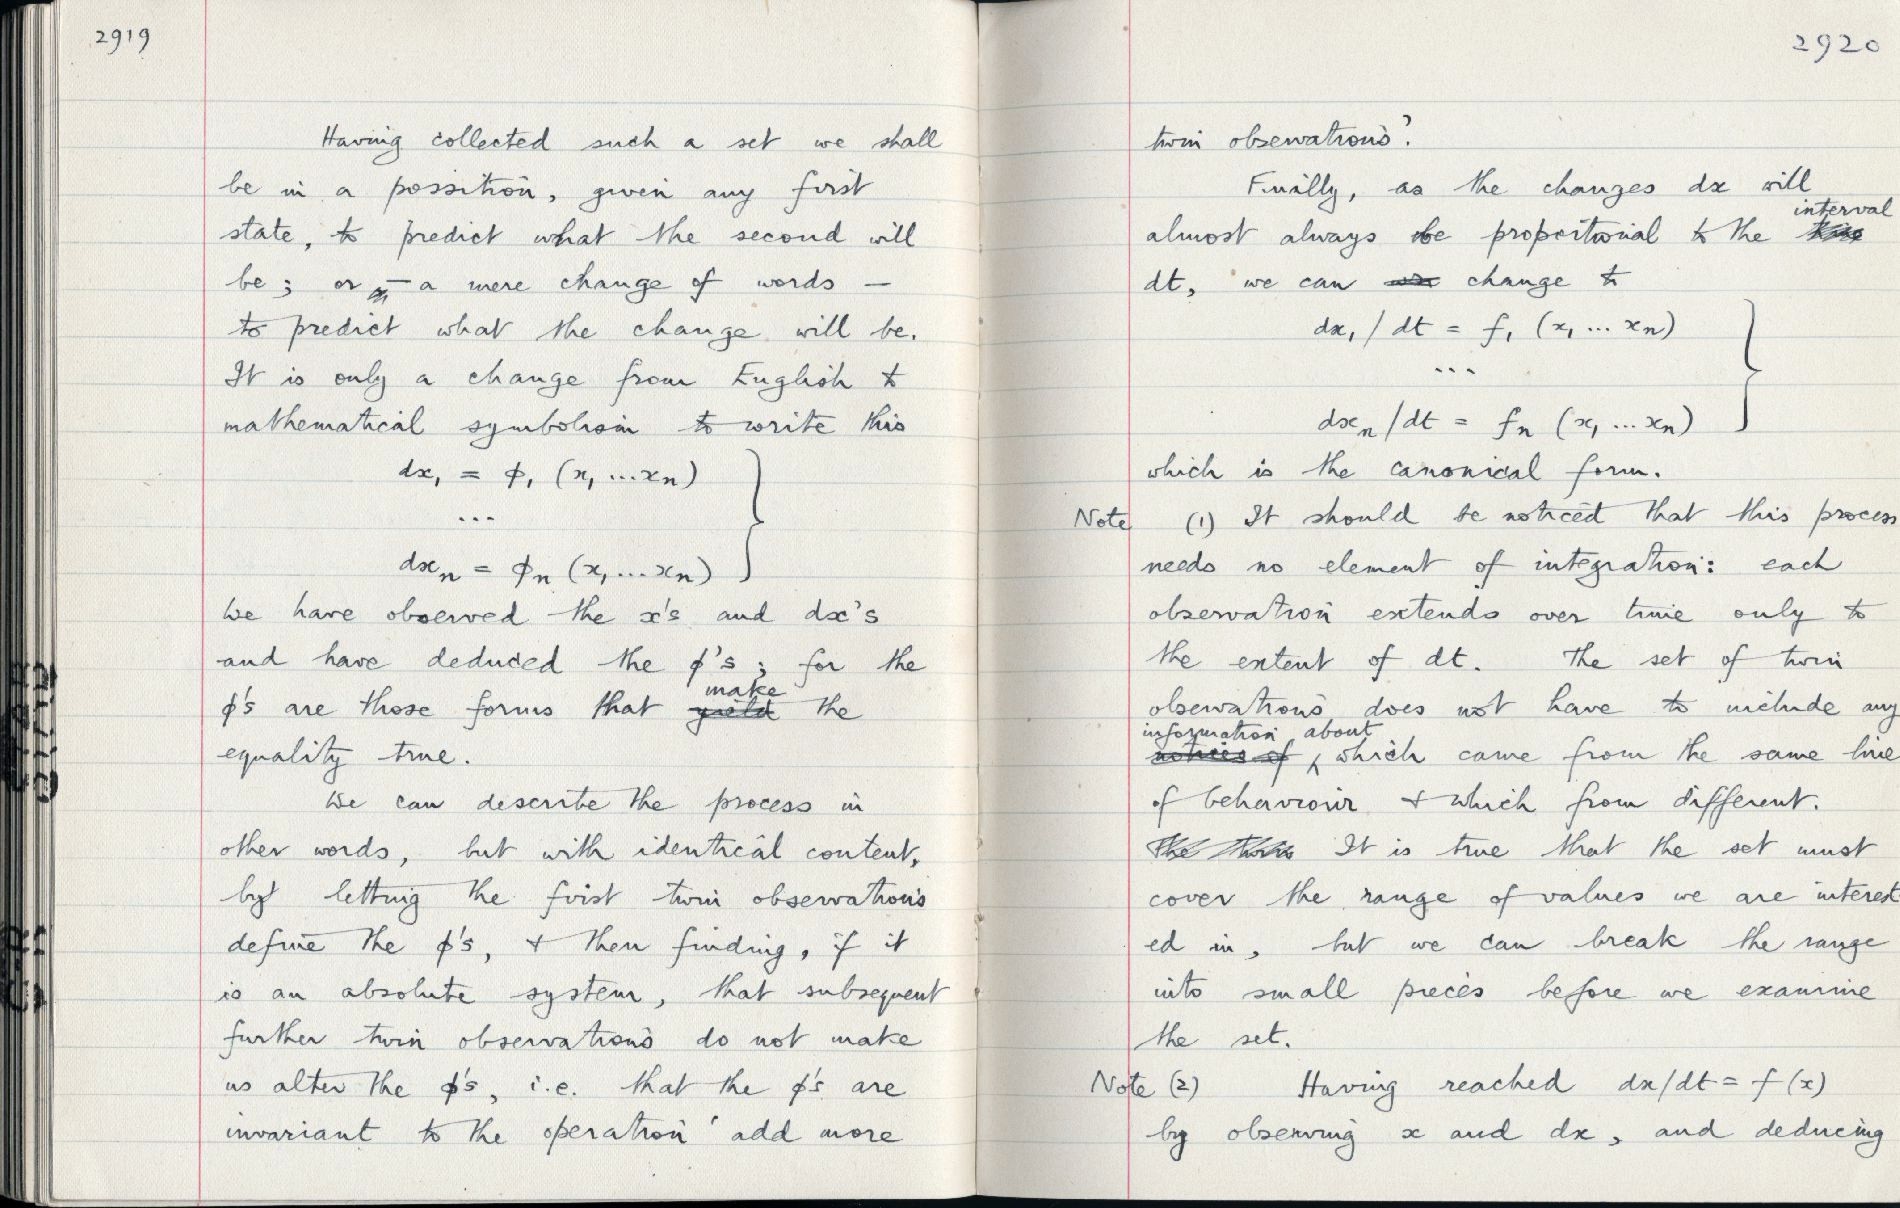 2919
Having collected such a set we shall
be in a possition, given any first
state, to predict what the second will
be; or — a mere change of words —
to predict what the change will be.
It is only a change from English to
mathematical symbolism to write this
dx₁ = ϕ₁ (x₁ ... xₙ)
...
dxₙ = ϕₙ (x₁ ... xₙ)
We have observed the x's and dx's
and have deduced the ϕ's; for the
make
ϕ's are those forms that yield the
equality true.
We can describe the process in
other words, but with identical content,
by letting the first twin observations
define the ϕ's, & then finding, if it
is an absolute system, that subsequent
further twin observations do not make
us alter the ϕ's, i.e. that the ϕ's are
invariant to the operation 'add more
2920
twin observations'.
Finally, as the changes dx will
interval
almost always be proportional to the time
dt, we can change to
dx₁ / dt = f₁ (x₁ ... xₙ)
...
dxₙ / dt = fₙ (x₁ ... xₙ)
which is the canonical form.
Note (1) It should be noticed that this process
needs no element of integration: each
observation extends over time only to
the extent of dt. The set of twin
observations does not have to include any
information about
notices of , which came from the same line
of behaviour & which from different.
The twin It is true that the set must
cover the range of values we are interest
ed in, but we can break the range
into small pieces before we examine
the set.
Note (2) Having reached dx/dt = f(x)
by observing x and dx, and deducing